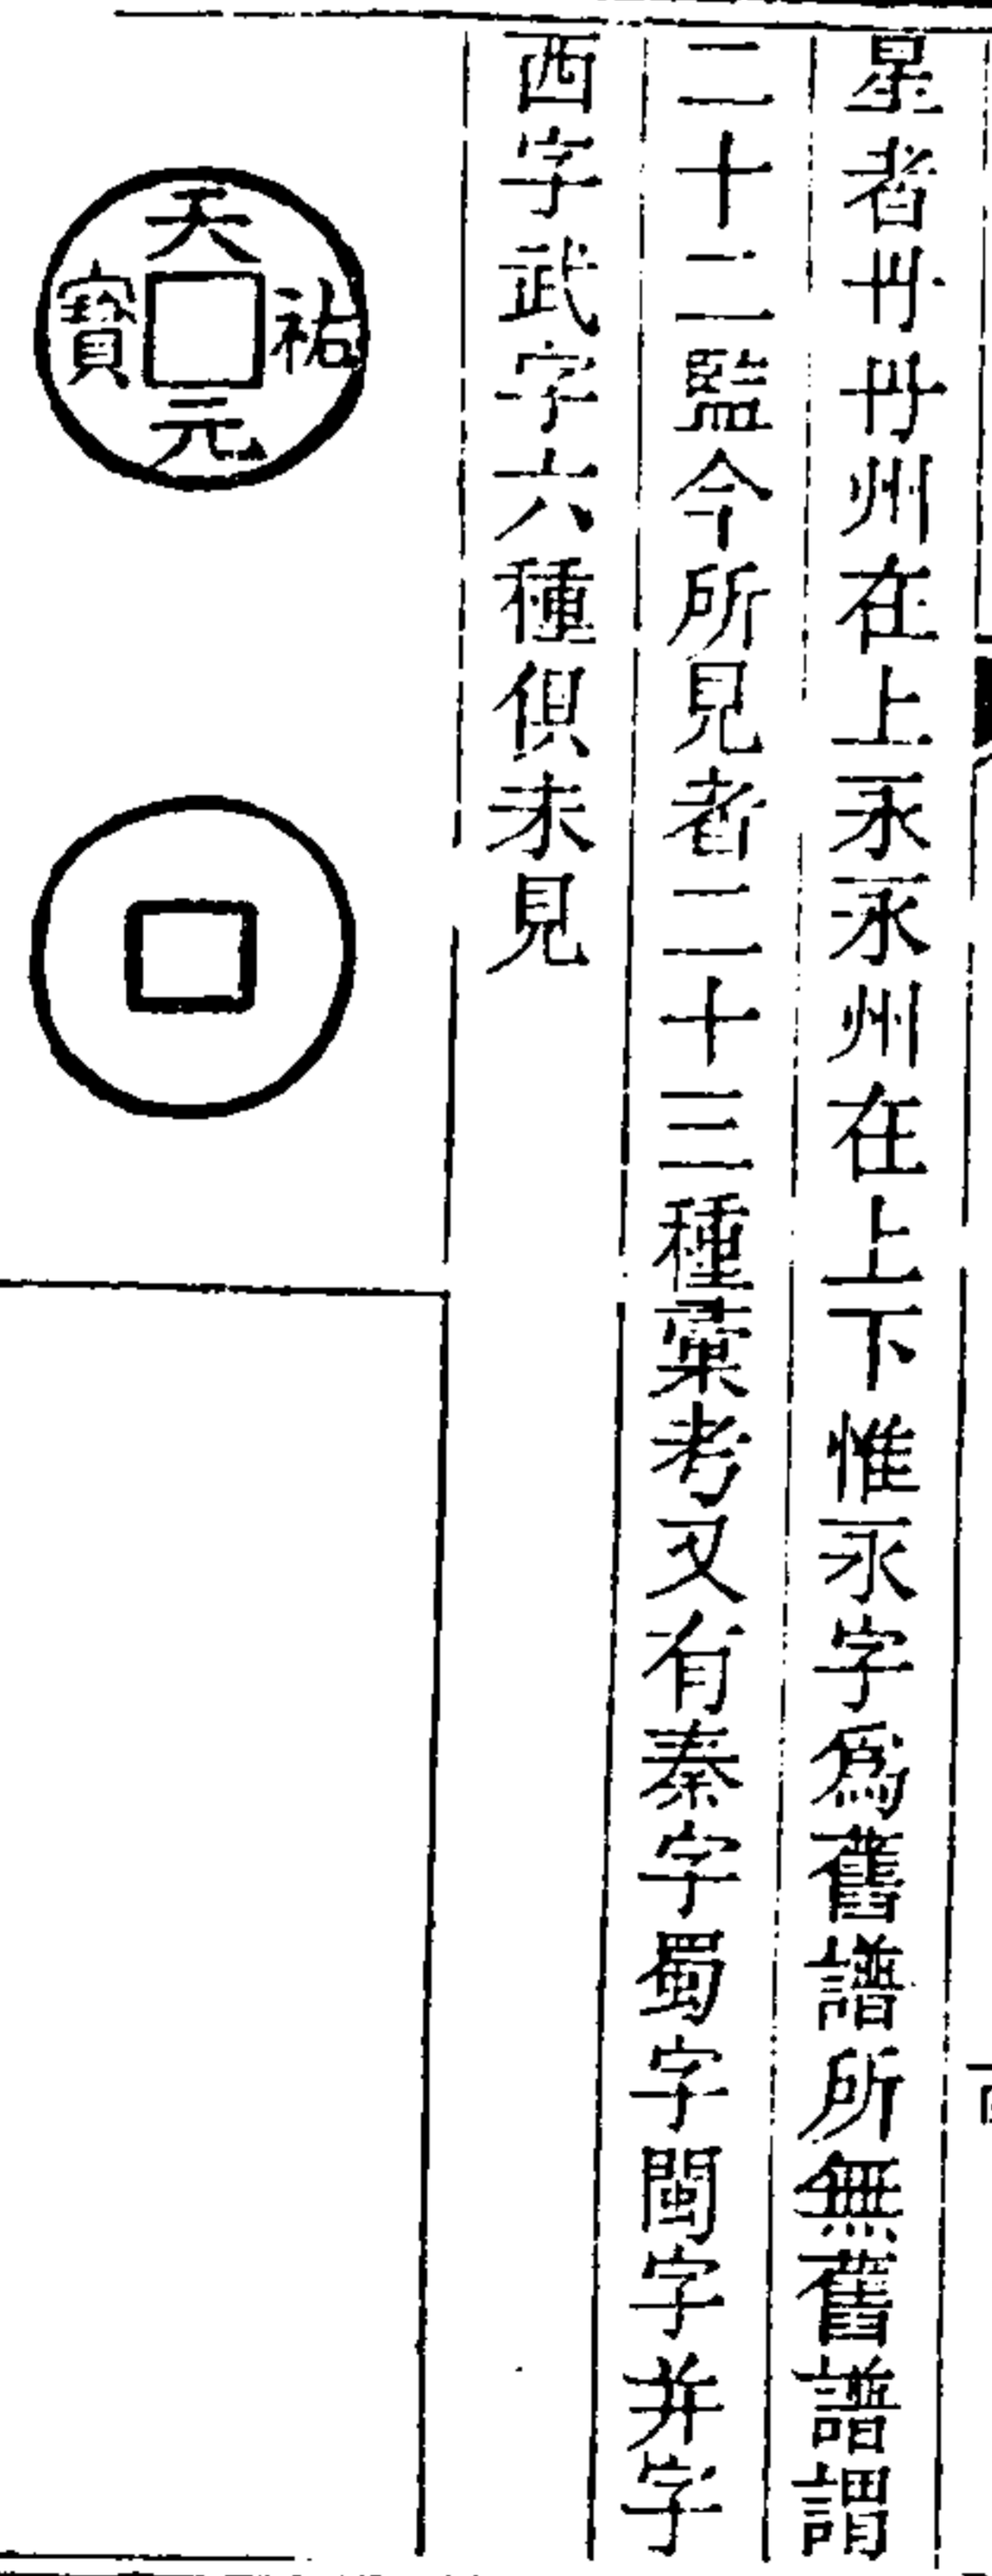 星者丹丹州在上永永州在上下惟永字爲舊譜所無舊譜謂
二十二監今所見者二十三種彙考又有秦字蜀字閩字并字
西字武字六種俱未見
天祐元寶